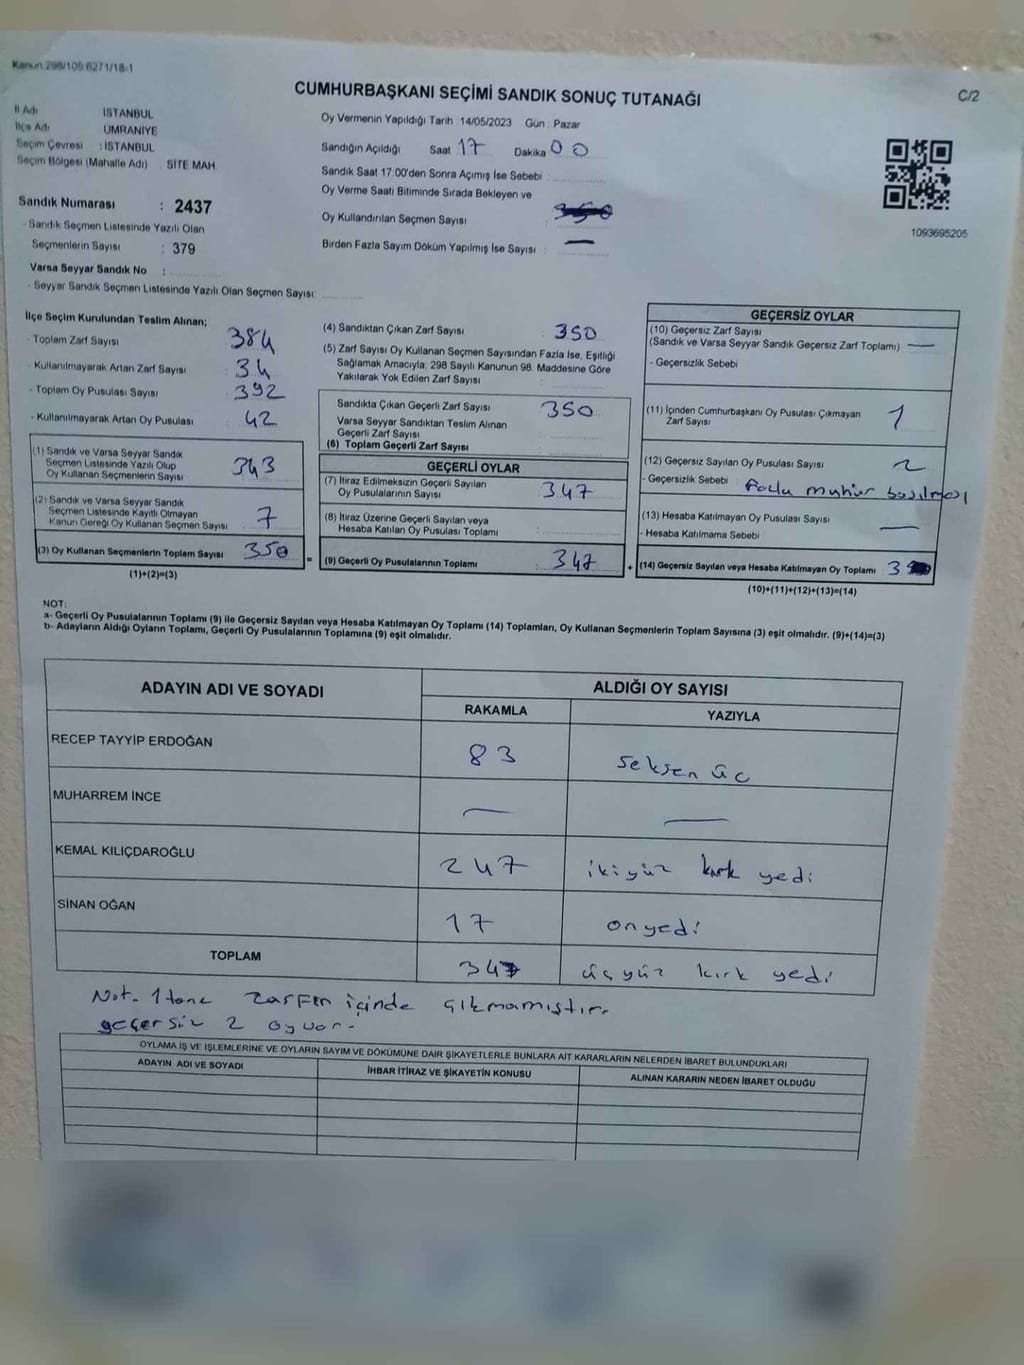 Kanun:298/105 6271/18-1
CUMHURBAŞKANI SEÇİMİ SANDIK SONUÇ TUTANAĞI
C/2
İl Adı : İSTANBUL
İlçe Adı : ÜMRANİYE
Seçim Çevresi : İSTANBUL
Seçim Bölgesi (Mahalle Adı) : SİTE MAH
Sandık Numarası : 2437
- Sandık Seçmen Listesinde Yazılı Olan
Seçmenlerin Sayısı : 379
Varsa Seyyar Sandık No :
- Seyyar Sandık Seçmen Listesinde Yazılı Olan Seçmen Sayısı:
Oy Vermenin Yapıldığı Tarih :14/05/2023 Gün : Pazar
Sandığın Açıldığı Saat 17 Dakika 00
Sandık Saat 17:00'den Sonra Açımış İse Sebebi :
Oy Verme Saati Bitiminde Sırada Bekleyen ve
Oy Kullandırılan Seçmen Sayısı : 350
Birden Fazla Sayım Döküm Yapılmış İse Sayısı : —
1093695205
İlçe Seçim Kurulundan Teslim Alınan;
- Toplam Zarf Sayısı : 384
- Kullanılmayarak Artan Zarf Sayısı : 34
- Toplam Oy Pusulası Sayısı : 392
- Kullanılmayarak Artan Oy Pusulası : 42
(1) Sandık ve Varsa Seyyar Sandık
Seçmen Listesinde Yazılı Olup
Oy Kullanan Seçmenlerin Sayısı : 343
(2) Sandık ve Varsa Seyyar Sandık
Seçmen Listesinde Kayıtlı Olmayan
Kanun Gereği Oy Kullanan Seçmen Sayısı : 7
(3) Oy Kullanan Seçmenlerin Toplam Sayısı : 350
(1)+(2)=(3)
(4) Sandıktan Çıkan Zarf Sayısı : 350
(5) Zarf Sayısı Oy Kullanan Seçmen Sayısından Fazla İse, Eşitliği
Sağlamak Amacıyla, 298 Sayılı Kanunun 98. Maddesine Göre
Yakılarak Yok Edilen Zarf Sayısı :
Sandıkta Çıkan Geçerli Zarf Sayısı : 350
Varsa Seyyar Sandıktan Teslim Alınan
Geçerli Zarf Sayısı :
(6) Toplam Geçerli Zarf Sayısı :
GEÇERLİ OYLAR
(7) İtiraz Edilmeksizin Geçerli Sayılan
Oy Pusulalarının Sayısı : 347
(8) İtiraz Üzerine Geçerli Sayılan veya
Hesaba Katılan Oy Pusulası Toplamı :
= (9) Geçerli Oy Pusulalarının Toplamı : 347
GEÇERSİZ OYLAR
(10) Geçersiz Zarf Sayısı
(Sandık ve Varsa Seyyar Sandık Geçersiz Zarf Toplamı) : —
- Geçersizlik Sebebi :
(11) İçinden Cumhurbaşkanı Oy Pusulası Çıkmayan
Zarf Sayısı : 1
(12) Geçersiz Sayılan Oy Pusulası Sayısı : 2
- Geçersizlik Sebebi : Fazla mühür basılması
(13) Hesaba Katılmayan Oy Pusulası Sayısı : —
- Hesaba Katılmama Sebebi :
+ (14) Geçersiz Sayılan veya Hesaba Katılmayan Oy Toplamı : 3
(10)+(11)+(12)+(13)=(14)
NOT:
a- Geçerli Oy Pusulalarının Toplamı (9) ile Geçersiz Sayılan veya Hesaba Katılmayan Oy Toplamı (14) Toplamları, Oy Kullanan Seçmenlerin Toplam Sayısına (3) eşit olmalıdır. (9)+(14)=(3)
b- Adayların Aldığı Oyların Toplamı, Geçerli Oy Pusulalarının Toplamına (9) eşit olmalıdır.
ADAYIN ADI VE SOYADI
ALDIĞI OY SAYISI
RAKAMLA YAZIYLA
RECEP TAYYİP ERDOĞAN 83 seksen üc
MUHARREM İNCE — —
KEMAL KILIÇDAROĞLU 247 ikiyüz kırk yedi
SİNAN OĞAN 17 onyedi
TOPLAM 347 üçyüz kırk yedi
Not. 1 tane zarfın içinde çıkmamıştır.
geçersiz 2 oyvar.
OYLAMA İŞ VE İŞLEMLERİNE VE OYLARIN SAYIM VE DÖKÜMÜNE DAİR ŞİKAYETLERLE BUNLARA AİT KARARLARIN NELERDEN İBARET BULUNDUKLARI
ADAYIN ADI VE SOYADI İHBAR İTİRAZ VE ŞİKAYETİN KONUSU ALINAN KARARIN NEDEN İBARET OLDUĞU